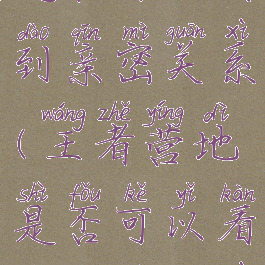 dào qīn mì guān xì
到亲密关系
wáng zhě yíng dì
(王者营地
shì fǒu kě yǐ kàn
是否可以看